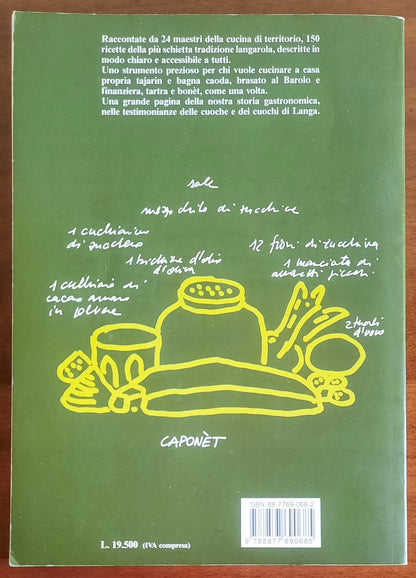 Raccontate da 24 maestri della cucina di territorio, 150
ricette della più schietta tradizione langarola, descritte in
modo chiaro e accessibile a tutti.
Uno strumento prezioso per chi vuole cucinare a casa
propria tajarin e bagna caoda, brasato al Barolo e
finanziera, tartra e bonèt, come una volta.
Una grande pagina della nostra storia gastronomica,
nelle testimonianze delle cuoche e dei cuochi di Langa.
sale
mezzo chilo di zucchine
1 cucchiaino
di zucchero
12 fiori di zucchina
1 bicchiere d'olio
d'oliva
1 manciata di
amaretti
1 cucchiaio di
cacao amaro
in polvere
2 tuorli
d'uovo
CAPONÈT
ISBN 88-7769-068-2
9 788877 690685
L. 19.500 (IVA compresa)